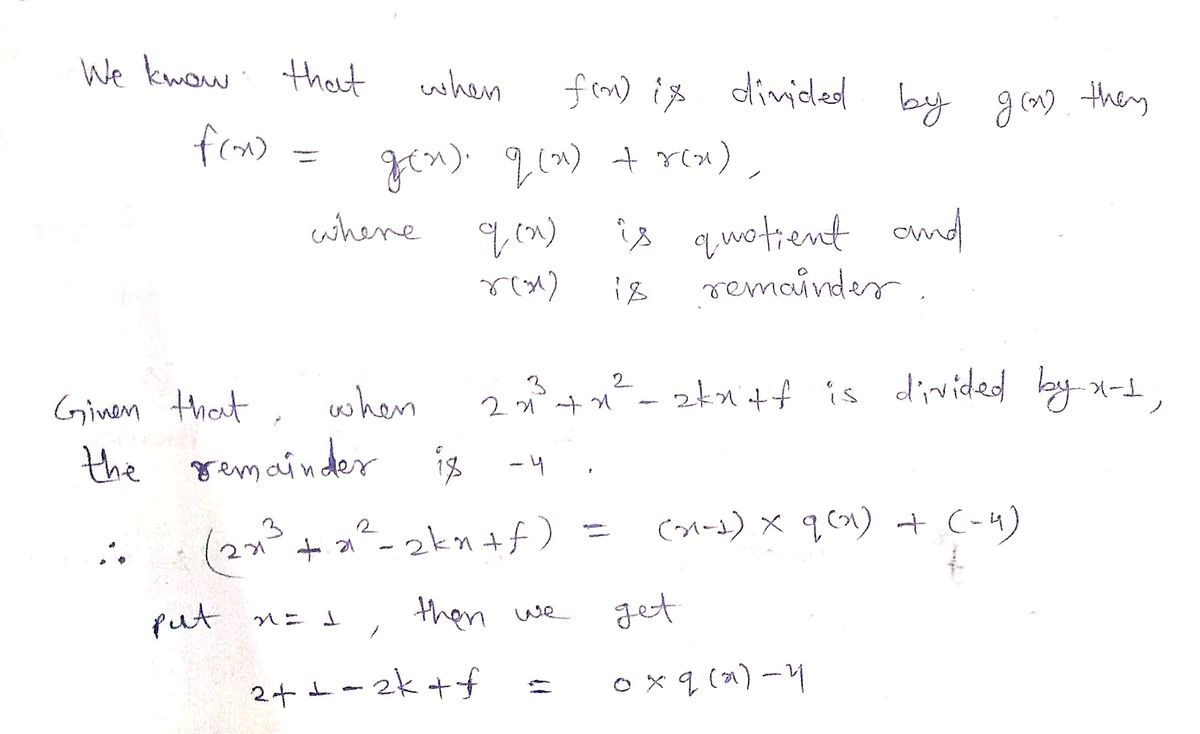 We know that when f(x) is divided by g(x) then
f(x) = g(x). q(x) + r(x),
where q(x) is quotient and
r(x) is remainder.
Given that, when 2x³+x²-2kx+f is divided by x-1,
the remainder is -4.
∴ (2x³+x²-2kx+f) = (x-1) × q(x) + (-4)
put x=1, then we get
2+1-2k+f = 0×q(x)-4